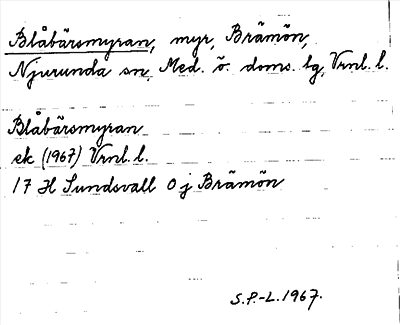 Blåbärsmyran, myr, Brämön,
Njurunda sn, Med. ö. doms. lg, Vrnl. l.
Blåbärsmyran
ek (1967) Vrnl. l.
17 H Sundsvall 0 j Brämön
S.P.-L. 1967.